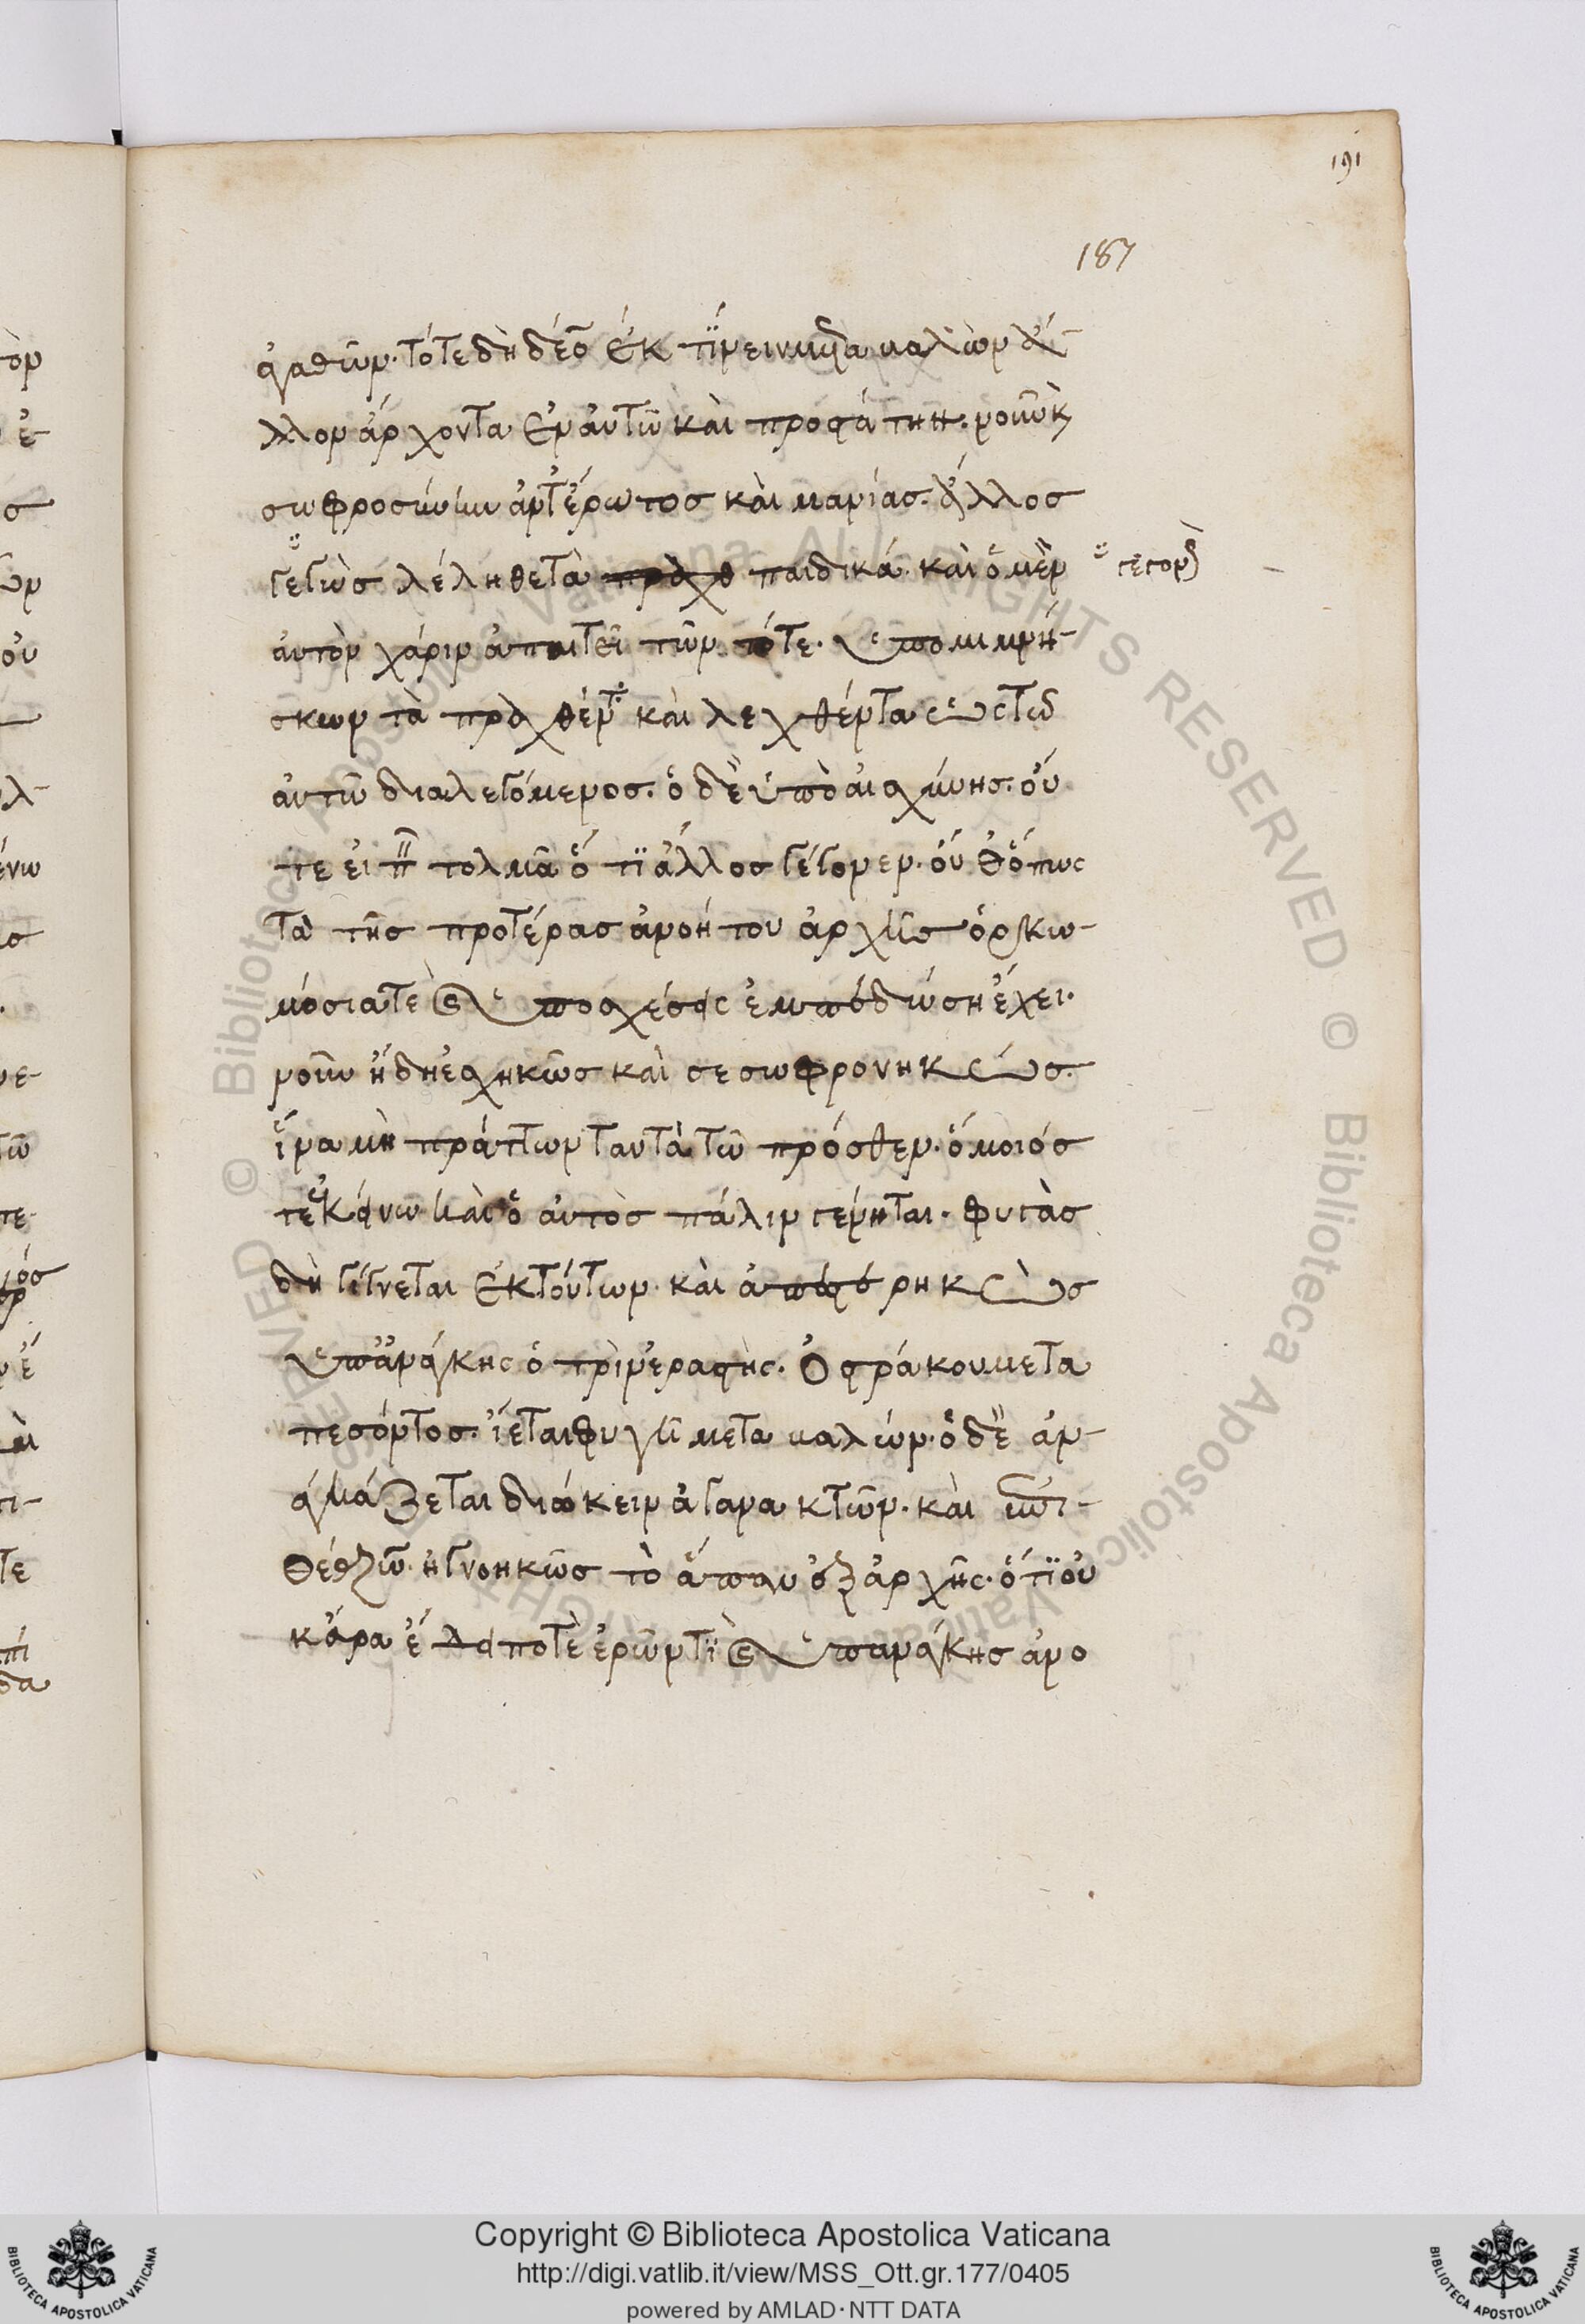 191
187
ἀγαθῶν· τότε δὴ δέον ἐκτίνειν μεταβαλὼν ἄ-
λλον ἄρχοντα ἐν αὑτῶ καὶ προστάτην· νοῦν κ(αὶ)
σωφροσύνην ἀντ' ἔρωτος καὶ μανίας. ἄλλος
γεγὼς λέληθε τὰ παιδικά. καὶ ὁ μὲν
γεγονὼς
αὐτὸν χάριν ἀπαιτεῖ τῶν τότε. ὑπομιμνή-
σκων τὰ πραχθέντα καὶ λεχθέντα ὡς τῶ
αὐτῶ διαλεγόμενος. ὁ δὲ ὑπὸ αἰσχύνης. οὔ
τε εἰπεῖν τολμᾶ ὅτι ἄλλος γέγονεν. οὔθ' ὅπως
τὰ τῆς προτέρας ἀνοήτου ἀρχῆς ὁρκω-
μόσιά τε καὶ ὑποσχέσεις ἐμπεδώση ἔχει.
νοῦν ἤδη ἐσχηκὼς καὶ σεσωφρονηκώς.
ἵνα μὴ πράττων ταυτὰ τῶ πρόσθεν. ὅμοιός
τε ἐκείνω καὶ ὁ αὐτὸς πάλιν γένηται. φυγὰς
δὴ γίγνεται ἐκ τούτων. καὶ ἀπεστερηκὼς
ὑπ' ἀνάγκης ὁ πρὶν ἐραστὴς. ὀστράκου μετα
πεσόντος. ἵεται φυγῆ μεταβαλών. ὁ δὲ ἀν-
αγκάζεται διώκειν ἀγανακτῶν. καὶ ἐπι-
θεάζων. ἠγνοηκὼς τὸ ἅπαν ἐξ ἀρχῆς. ὅτι οὐ
κ ἄρα ἔδει ποτὲ ἐρῶντι καὶ ὑπ' ἀνάγκης ἀνο
Copyright © Biblioteca Apostolica Vaticana
http://digi.vatlib.it/view/MSS_Ott.gr.177/0405
powered by AMLAD · NTT DATA